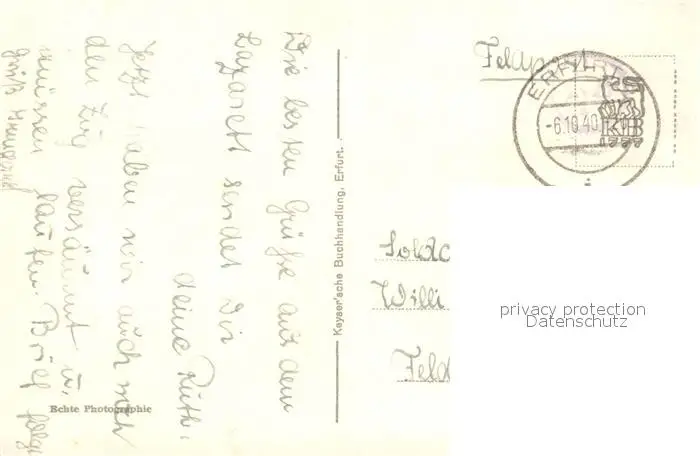 Die besten Grüße aus dem
Lazarett sendet Dir
deine Ruth.
Jetzt haben wir auch noch
den Zug versäumt u.
müssen laufen. Brief folgt
Gruß
Echte Photographie
Keyser'sche Buchhandlung, Erfurt.
Feldp
ERFURT
-6.10.40
KdB
Solda
Willi
Feld
privacy protection
Datenschutz